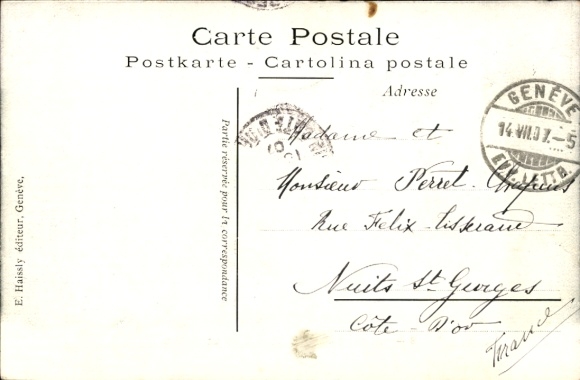 Carte Postale
Postkarte - Cartolina postale
Adresse
GENÈVE
14.VII.07.-5
EXP. LETTR.
Madame et
Monsieur Perret-
Rue Felix Tisserand
Nuits St Georges
Côte-D'or
France
Partie réservée pour la correspondance
E. Haissly éditeur, Genève,